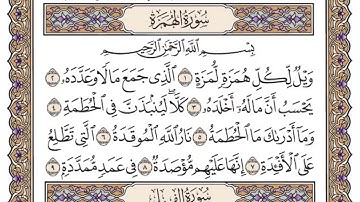 سُورَةُ الهُمَزَةِ
بِسْمِ اللَّهِ الرَّحْمَٰنِ الرَّحِيمِ
وَيْلٌ لِّكُلِّ هُمَزَةٍ لُّمَزَةٍ ١ الَّذِي جَمَعَ مَالًا وَعَدَّدَهُ ٢
يَحْسَبُ أَنَّ مَالَهُ أَخْلَدَهُ ٣ كَلَّا لَيُنۢبَذَنَّ فِي الْحُطَمَةِ ٤
وَمَا أَدْرَىٰكَ مَا الْحُطَمَةُ ٥ نَارُ اللَّهِ الْمُوقَدَةُ ٦ الَّتِي تَطَّلِعُ
عَلَى الْأَفْـِٔدَةِ ٧ إِنَّهَا عَلَيْهِم مُّؤْصَدَةٌ ٨ فِي عَمَدٍ مُّمَدَّدَةٍۭ ٩
سُورَةُ الفِيلِ